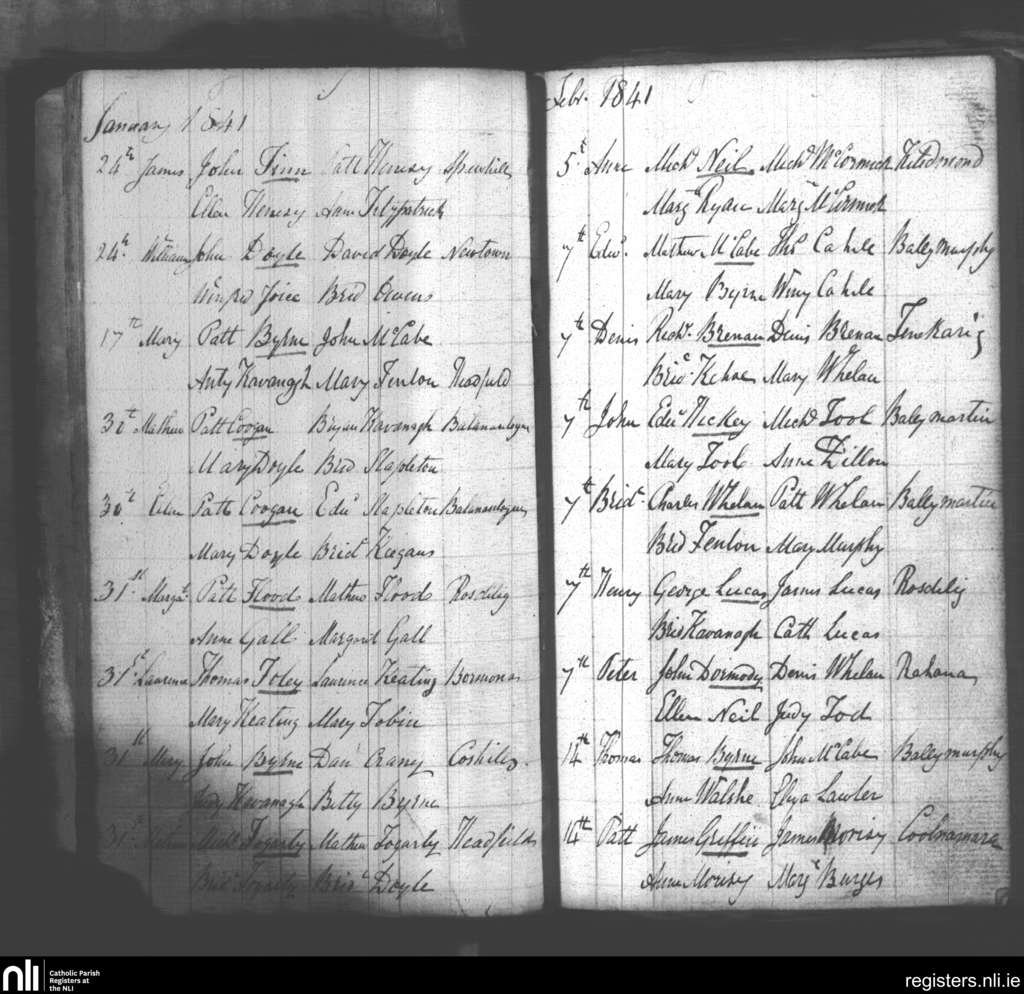 January 1841
24th James John Finn Patt Henesy
Ellen Henesy Anne Fitzpatrick
24th William John Doyle David Doyle Newtown
Winfred Joice Brid Owens
17th Mary Patt Byrne John McCabe
Anty Kavanagh Mary Fenlon Headfield
30th Mathew Patt Coogan Bryan Kavanagh
Mary Doyle Brid Stapleton
30th Ellen Patt Coogan Edwd Stapleton
Mary Doyle Bridt Keegans
31st Margt Patt Flood Mathew Flood Rosdelig
Anne Gall Margaret Gall
31st Laurence Thomas Foley Laurence Keating
Mary Keating Mary Tobin
31st Mary John Byrne Dan Crany Coshills
Judy Kavanagh Betty Byrne
31st Michl Fogarty Mathew Fogarty Headfields
Brid Fogarty Bridt Doyle
Febr. 1841
5th Anne Michl Neil Michl McCormick
Margt Ryan Margt McCormick
7th Edwd Mathew McCabe Thos Cahill Ballymurphy
Mary Byrne Winy Cahill
7th Denis Richd Brenan Denis Brenan
Brid Kehoe Mary Whelan
7th John Edwd Hickey Michl Tool Balymartin
Mary Tool Anne Dillon
7th Bridt Charles Whelan Patt Whelan Ballymartin
Brid Fenlon Mary Murphy
7th Henry George Lucas James Lucas Rosdelig
Brid Kavanagh Cath Lucas
7th Peter John Dormody Denis Whelan Rahana
Ellen Neil Judy Tool
14th Thomas Thomas Byrne John McCabe Ballymurphy
Anne Walshe Eliza Lawler
14th Patt James Griffin James Morisy Coolnamara
Anne Morisy Margt Burges
nli Catholic Parish
Registers at
the NLI
registers.nli.ie